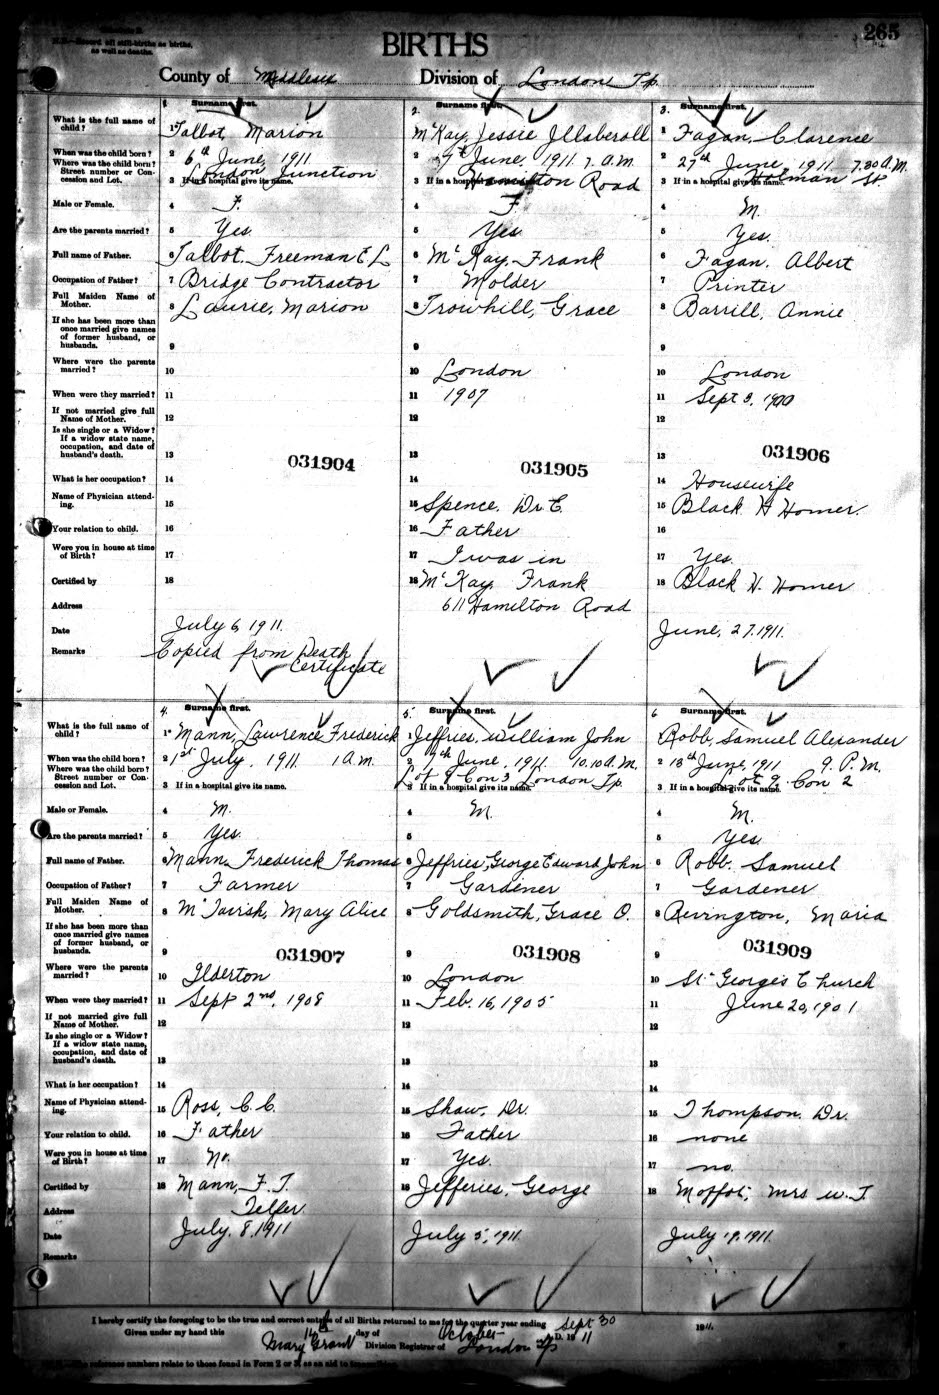 265
N.B.—Record all still-births as births,
as well as deaths.
BIRTHS
County of Middlesex Division of London Tp.
1. Surname first. 2. Surname first. 3. Surname first.
What is the full name of child? 1 Talbot Marion 1 McKay, Jessie 1 Fagan, Clarence
When was the child born? 2 6th June, 1911 2 7th June, 1911 7. A.M. 2 27th June, 1911 7.30 A.M.
Where was the child born? Street number or Concession and Lot. London Junction Hamilton Road Holman St.
3 If in a hospital give its name. 3 If in a hospital give its name. 3 If in a hospital give its name.
Male or Female. 4 F. 4 F 4 M.
Are the parents married? 5 Yes. 5 Yes. 5 Yes.
Full name of Father. 6 Talbot. Freeman E L 6 McKay, Frank 6 Fagan. Albert
Occupation of Father? 7 Bridge Contractor 7 Molder 7 Printer
Full Maiden Name of Mother. 8 Laurie, Marion 8 Trowhill, Grace 8 Barrill, Annie
If she has been more than once married give names of former husband, or husbands. 9 9 9
Where were the parents married? 10 10 London 10 London
When were they married? 11 11 1907 11 Sept 3, 1900
If not married give full Name of Mother. 12 12 12
Is she single or a Widow? If a widow state name, occupation, and date of husband's death. 13 13 13
031904 031905 031906
What is her occupation? 14 14 14 Housewife
Name of Physician attending. 15 15 Spence. Dr. E. 15 Black H Homer.
Your relation to child. 16 16 Father 16
Were you in house at time of Birth? 17 17 I was in 17 Yes.
Certified by 18 18 McKay Frank 18 Black H. Homer
Address 611 Hamilton Road
Date July 6, 1911. June, 27. 1911.
Remarks Copied from Death Certificate
4. Surname first. 5. Surname first. 6 Surname first.
What is the full name of child? 1 Mann, Lawrence Frederick 1 Jeffries, William John 1 Robb, Samuel Alexander
When was the child born? 2 1st July, 1911. 1 A.M. 2 7th June, 1911. 10.10 A.M. 2 18th June, 1911 9. P.M.
Where was the child born? Street number or Concession and Lot. Lot 9 Con 3 London Tp. Lot 9 Con 2
3 If in a hospital give its name. 3 If in a hospital give its name. 3 If in a hospital give its name.
Male or Female. 4 M. 4 M. 4 M.
Are the parents married? 5 Yes. 5 5 Yes
Full name of Father. 6 Mann, Frederick Thomas 6 Jeffries, George Edward John 6 Robb. Samuel
Occupation of Father? 7 Farmer 7 Gardener 7 Gardener
Full Maiden Name of Mother. 8 McTavish, Mary Alice 8 Goldsmith, Grace O. 8 Revington, Maria
If she has been more than once married give names of former husband, or husbands. 9 9 9
031907 031908 031909
Where were the parents married? 10 Ilderton 10 London 10 St. George's Church
When were they married? 11 Sept 2nd, 1908 11 Feb. 16, 1905 11 June 20, 1901
If not married give full Name of Mother. 12 12 12
Is she single or a Widow? If a widow state name, occupation, and date of husband's death. 13 13 13
What is her occupation? 14 14 14
Name of Physician attending. 15 Ross, C. C. 15 Shaw, Dr. 15 Thompson. Dr.
Your relation to child. 16 Father 16 Father 16 none
Were you in house at time of Birth? 17 No. 17 Yes. 17 no.
Certified by 18 Mann, F. T. 18 Jefferies, George 18 Moffat, Mrs W. J
Address Telfer
Date July. 8, 1911 July 5, 1911. July 19, 1911.
Remarks
I hereby certify the foregoing to be the true and correct entries of all Births returned to me for the quarter year ending Sept 30 1911.
Given under my hand this day of October A.D. 1911
Mary Grant Division Registrar of London Tp
N.B.—The reference numbers relate to those found in Form 2 or 3, as an aid to transcribing.